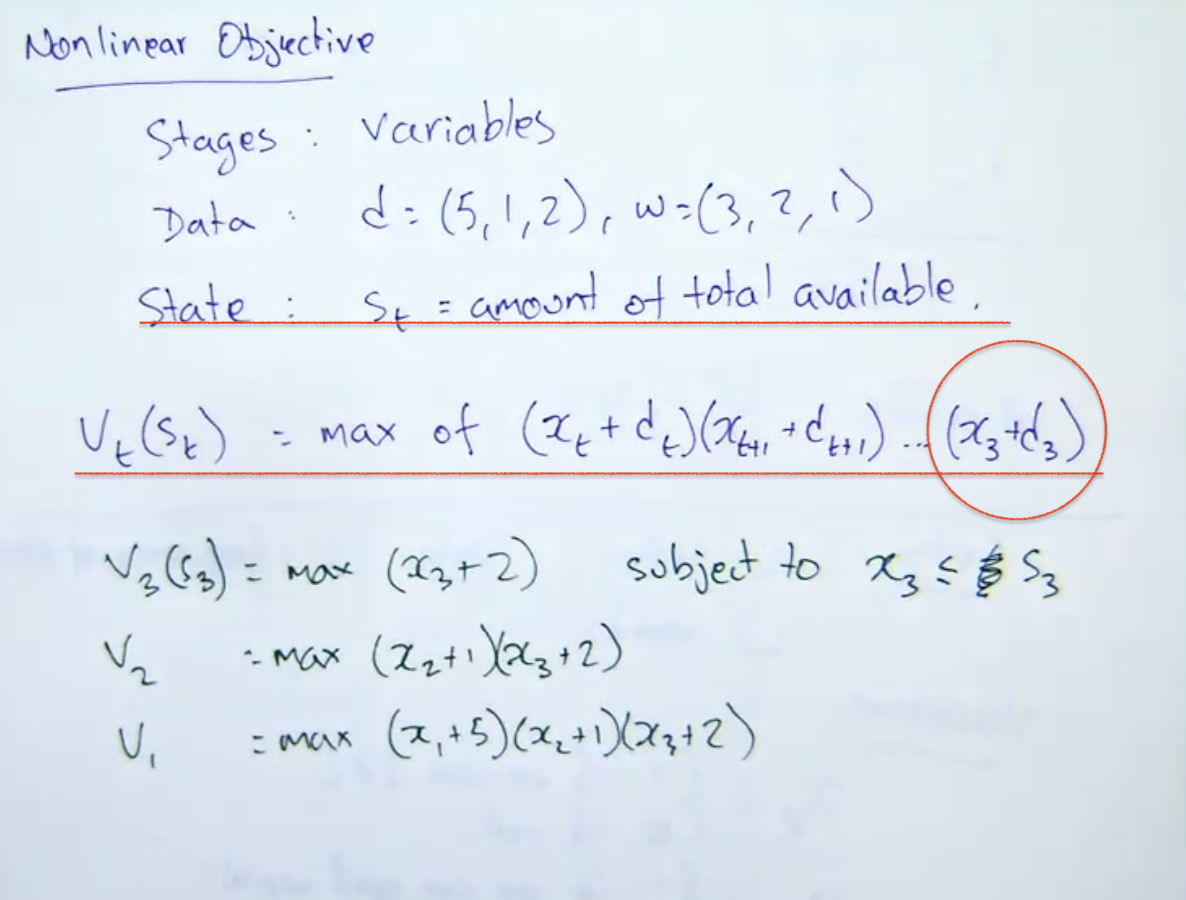 Nonlinear Objective
Stages : Variables
Data : d = (5, 1, 2), w = (3, 2, 1)
State : s_t = amount of total available.
V_t(s_t) = max of (x_t + d_t)(x_{t+1} + d_{t+1}) ... (x_3 + d_3)
V_3(s_3) = max (x_3 + 2) subject to x_3 ≤ s_3
V_2 = max (x_2 + 1)(x_3 + 2)
V_1 = max (x_1 + 5)(x_2 + 1)(x_3 + 2)